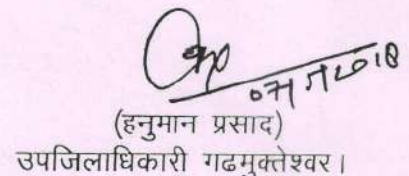 (हनुमान प्रसाद)
उपजिलाधिकारी गढमुक्तेश्वर।